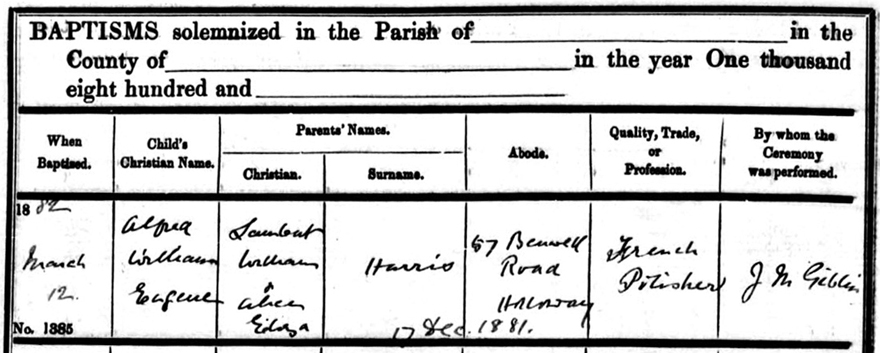 BAPTISMS solemnized in the Parish of in the
County of in the year One thousand
eight hundred and
When Baptised. Child's Christian Name. Parents' Names. Christian. Surname. Abode. Quality, Trade, or Profession. By whom the Ceremony was performed.
1882
March
12.
No. 1385
Alfred
William
Eugene
Lambert
William
&
Alice
Eliza
Harris
57 Benwell
Road
Holloway
17 Dec. 1881.
French
Polisher
J M Giblin